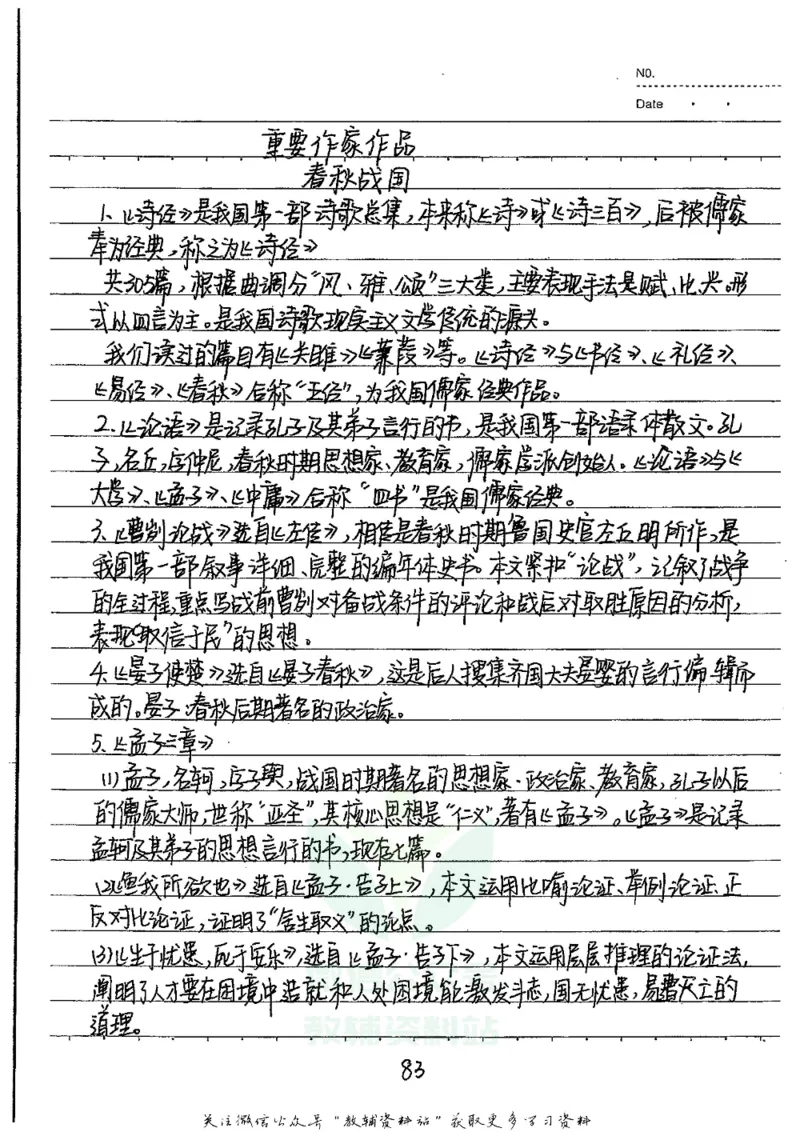 NO.
Date
重要作家作品
春秋战国
1、《诗经》是我国第一部诗歌总集，本来称《诗》或《诗三百》，后被儒家
奉为经典，称之为《诗经》
共305篇，根据曲调分“风、雅、颂”三大类，主要表现手法是赋、比、兴。形
式以四言为主。是我国诗歌现实主义文学传统的源头。
我们读过的篇目有《关雎》《蒹葭》等。《诗经》与《书经》、《礼经》、
《易经》、《春秋》合称“五经”，为我国儒家经典作品。
2、《论语》是记录孔子及其弟子言行的书，是我国第一部语录体散文。孔
子，名丘，字仲尼，春秋时期思想家、教育家，儒家学派创始人。《论语》与《
大学》、《孟子》、《中庸》合称“四书”是我国儒家经典。
3、《曹刿论战》选自《左传》，相传是春秋时期鲁国史官左丘明所作，是
我国第一部叙事详细、完整的编年体史书。本文紧扣“论战”，记叙了战争
的全过程，重点写战前曹刿对备战条件的评论和战后对取胜原因的分析，
表现“取信于民”的思想。
4、《晏子使楚》选自《晏子春秋》，这是后人搜集齐国大夫晏婴的言行编辑而
成的。晏子：春秋后期著名的政治家。
5、《孟子三章》
(1)孟子，名轲，字子舆，战国时期著名的思想家、政治家、教育家，孔子以后
的儒家大师，世称“亚圣”，其核心思想是“仁义”，著有《孟子》。《孟子》是记录
孟轲及其弟子的思想言行的书，现存七篇。
(2)《鱼我所欲也》选自《孟子·告子上》，本文运用比喻论证、举例论证、正
反对比论证，证明了“舍生取义”的论点。
(3)《生于忧患，死于安乐》，选自《孟子·告子下》，本文运用层层推理的论证法，
阐明了人才要在困境中造就和人处困境能激发斗志，国无忧患，易遭灭亡的
道理。
教辅资料站
83
关注微信公众号“教辅资料站”获取更多学习资料